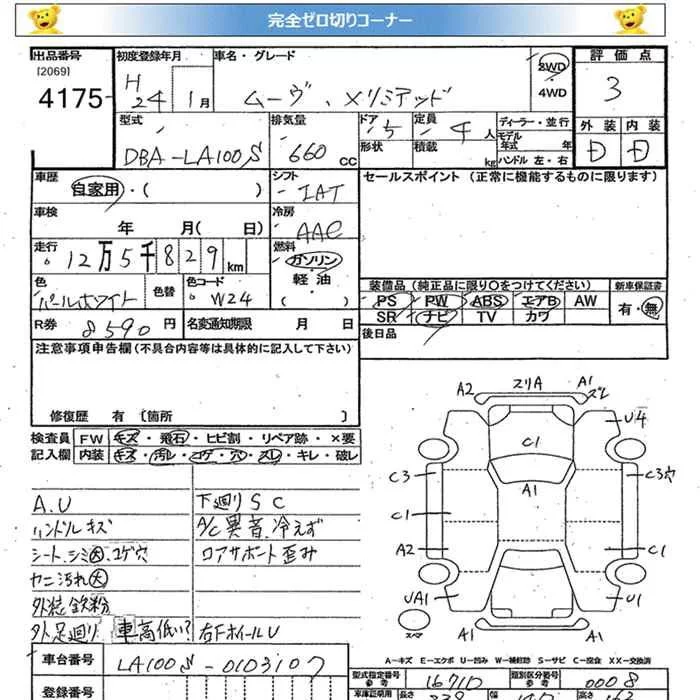 完全ゼロ切りコーナー
出品番号
[2069]
4175
初度登録年月
H 24 1月
車名・グレード
ムーヴ、メリミテッド
2WD
4WD
評価点
3
型式
DBA-LA100S
排気量
660 cc
ドア 5
形状
定員 4人
積載 kg
ディーラー・並行
モデル年式 年
ハンドル 左・右
外装 内装
D D
車歴
自家用・( )
シフト
IAT
セールスポイント(正常に機能するものに限ります)
車検
年 月( 日)
冷房
AAC
走行
12万5千829km
燃料
ガソリン・
軽油・
( )
色
パールホワイト
色替
色コード
W24
装備品(純正品に限り○をつけてください)
新車保証書
PS PW ABS エアB AW
SR ナビ TV カワ
有・無
R券 8590 円
名変通知期限 月 日
後日品
注意事項申告欄(不具合内容等は具体的に記入して下さい)
修復歴 有 [箇所 ]
検査員 FW キズ・飛石・ヒビ割・リペア跡・×要
記入欄 内装 キズ・汚レ・コゲ・穴・スレ・キレ・破レ
A.U
ハンドルキズ
シート、シミ大、コゲ穴
ヤニ汚れ大
外装鉄粉
外足廻り 車高低い? 右Fホイール U
下廻り S C
A/C異音、冷えず
ロアサポート歪み
A2 スリA A1 ズレ
U4
C1
C3 C3穴
A1
C1
A2 C1
UA1 U1
スペア A1 A1
A-キズ E-エクボ U-凹み W-補修跡 S-サビ C-腐食 XX-交換済
車台番号 LA100S-0103107
型式指定番号 参考 16710
類別区分番号 参考 0008
登録番号
車庫証明用
長さ